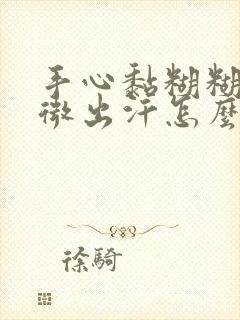 手心黏糊糊
微出汗怎麼
徐騎